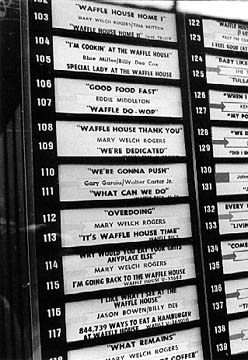 102
103
"WAFFLE HOUSE HOME I"
MARY WELCH ROGERS/TINA MITTON
"WAFFLE HOUSE HOME II"
104
105
"I'M COOKIN' AT THE WAFFLE HOUSE"
Billy Dee Cox
SPECIAL LADY AT THE WAFFLE HOUSE
106
107
"GOOD FOOD FAST"
EDDIE MIDDLETON
"WAFFLE DO-WOP"
108
109
"WAFFLE HOUSE THANK YOU"
MARY WELCH ROGERS
"WE'RE DEDICATED"
110
111
"WE'RE GONNA PUSH"
Gary Garcia/Walter Carter Jr.
"WHAT CAN WE DO"
112
113
"OVERDOING"
MARY WELCH ROGERS
"IT'S WAFFLE HOUSE TIME"
114
115
WHY WOULD YOU EAT YOUR GRITS
ANYPLACE ELSE"
MARY WELCH ROGERS
I'M GOING BACK TO THE WAFFLE HOUSE
116
117
I LIKE WHAT I SEE AT THE
WAFFLE HOUSE"
JASON BOWEN/BILLY DEE
844,739 WAYS TO EAT A HAMBURGER
AT WAFFLE HOUSE
118
"WHAT REMAINS"
MARY WELCH ROGERS
COFFEE"
122
123
124
125
126
127
128
129
130
131
132
133
134
135
136
137
138
139